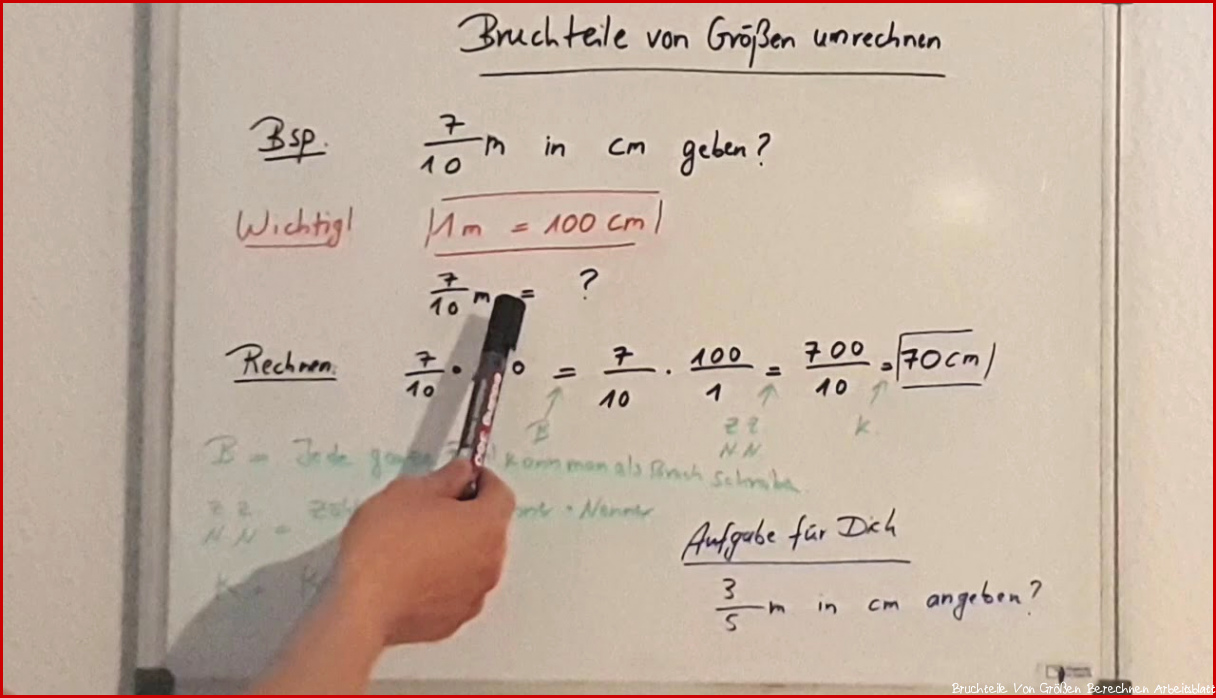 Bruchteile von Größen umrechnen
Bsp. 7/10 m in cm geben?
Wichtig! 1m = 100 cm
7/10 m = ?
Rechnen: 7/10 · 0 = 7/10 · 100/1 = 700/10 = 70 cm
B Z Z K.
N N
B = Jede kann man als Bruch schreiben
Z Z
N N = · Nenner
K =
Aufgabe für Dich
3/5 m in cm angeben?
Bruchteile Von Größen Berechnen Arbeitsblatt